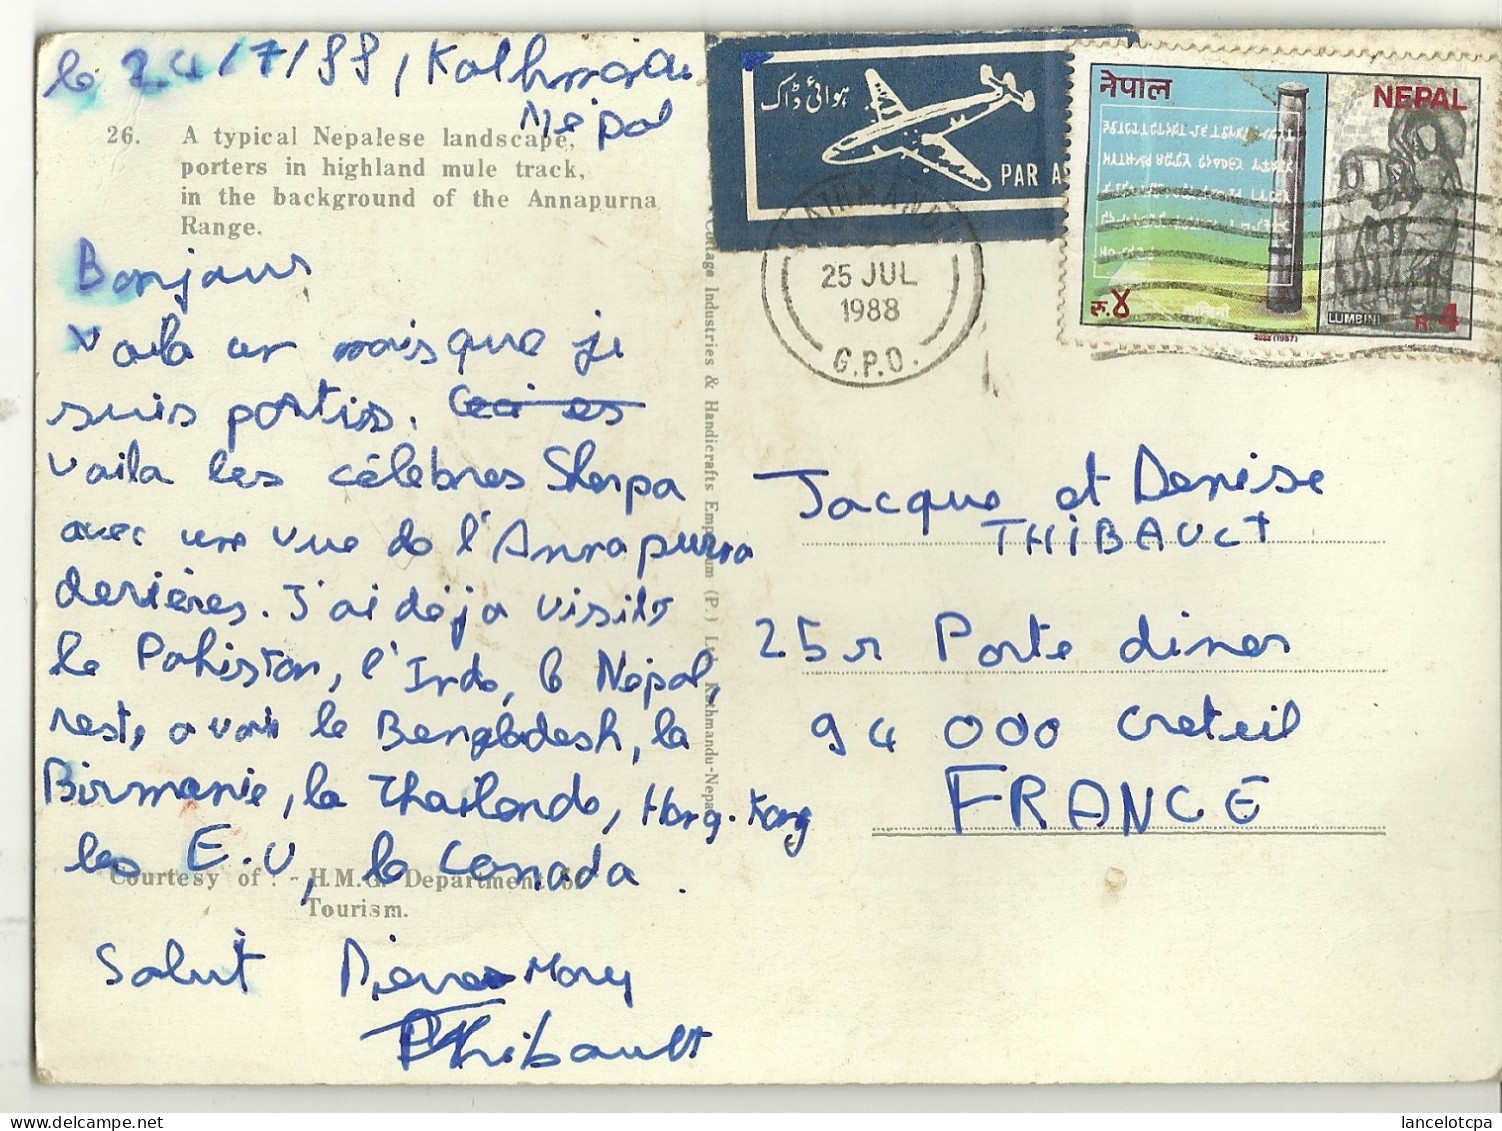 le 24/7/88, Kathma
Népal
26. A typical Nepalese landscape,
porters in highland mule track,
in the background of the Annapurna
Range.
Bonjour
Voila un mois que je
suis partis. Ceci es
voila les célèbres Sherpa
avec une vue de l'Annapurna
derières. J'ai déja visité
le Pakistan, l'Inde, le Népal,
reste a voir le Bengladesh, la
Birmanie, la Thailande, Hong-Kong
les E.U, le Canada.
Courtesy of :- H.M.G. Department of
Tourism.
Salut Pierre Mary
Thibault
Cottage Industries & Handicrafts Emporium (P.) Ltd. Kathmandu-Nepal
ہوائی ڈاک
PAR A
KATHMANDU
25 JUL
1988
G.P.O.
नेपाल
NEPAL
रु.४
लुम्बिनी
LUMBINI
R. 4
2044 (1987)
Jacque et Denise
THiBAUCt
25 r Porte dines
94 000 creteil
FRANCE
lancelotcpa